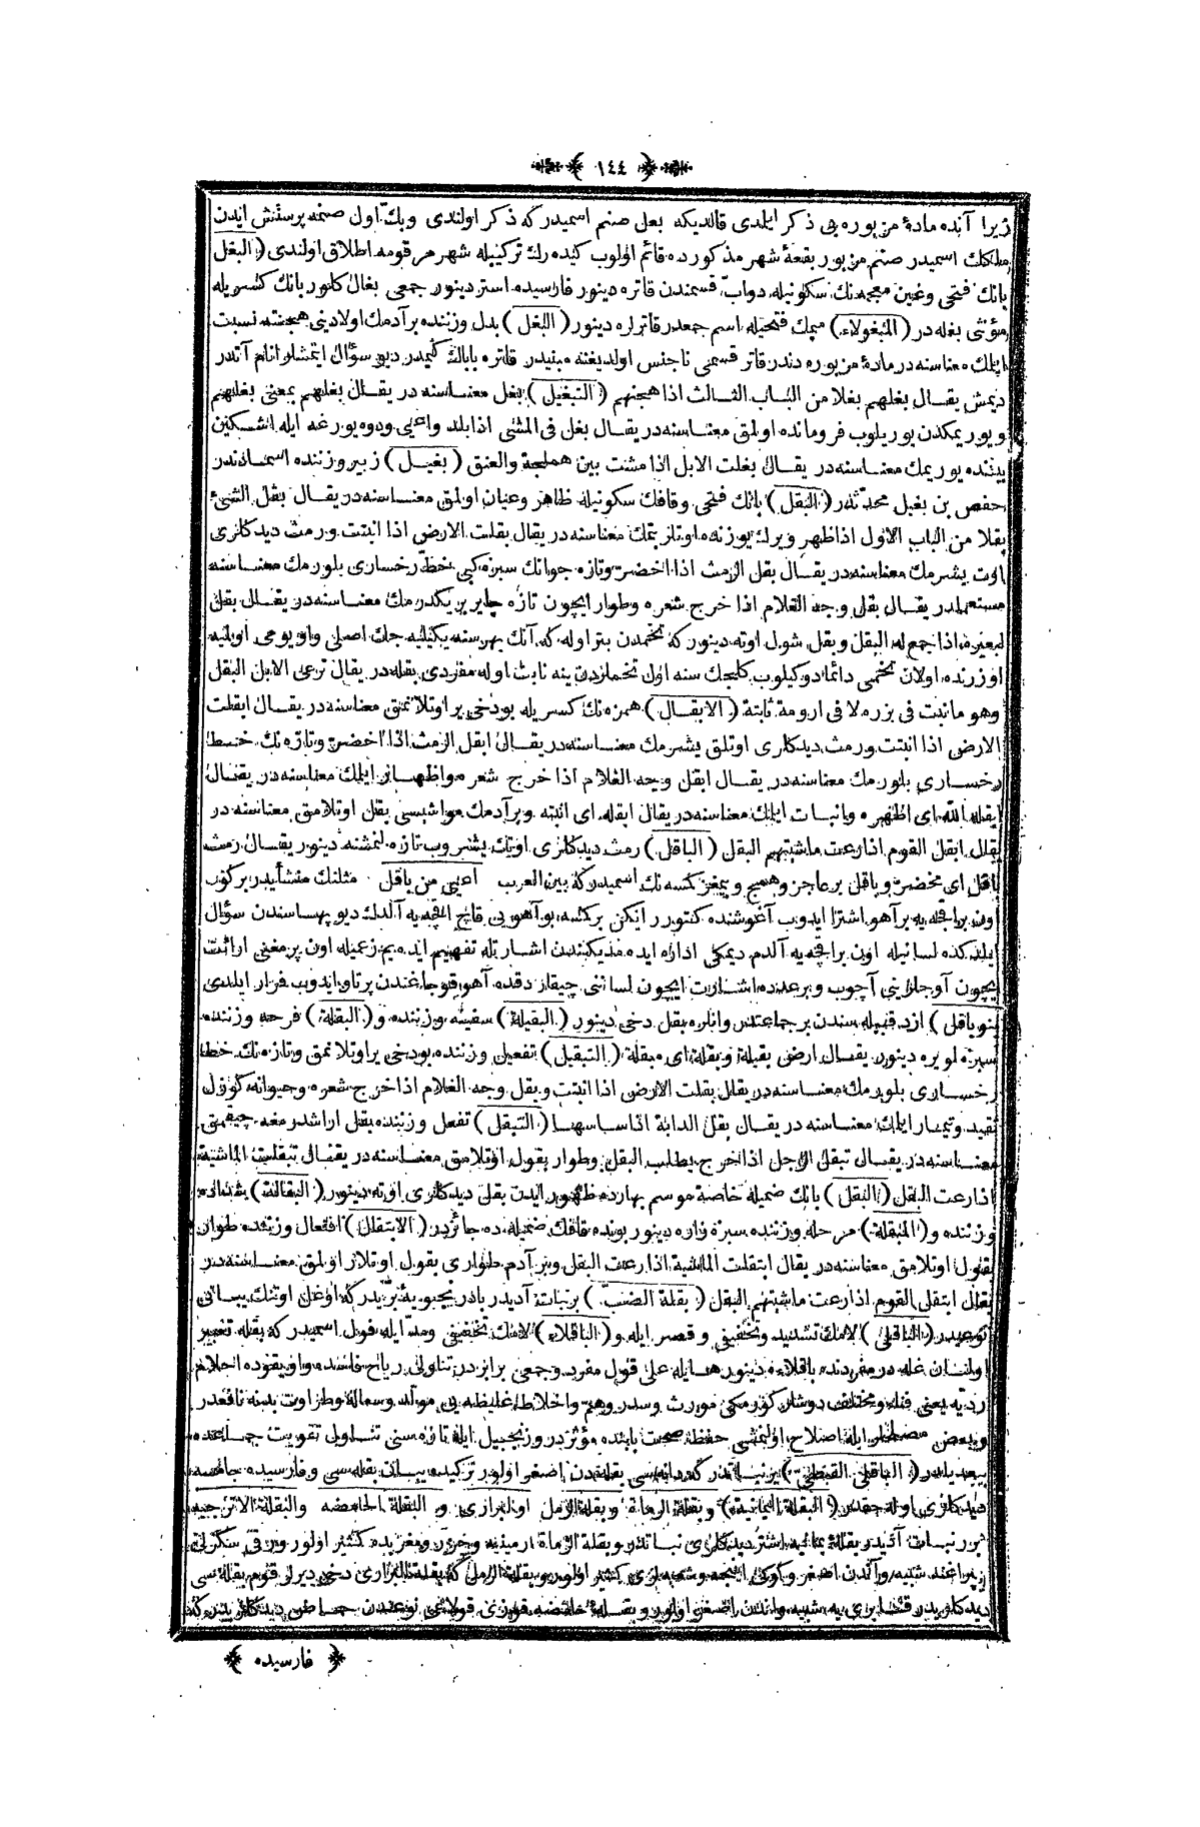 ﴿ ١٤٤ ﴾
زيرا آنده مادهٔ مزبوره يى ذكر ايلدى قالديكه بعل صنم اسميدر كه ذكر اولندى وبك اول صنمه پرستش ايدن
ملكك اسميدر صنم مزبور بقعهٔ شهر مذكورده قائم اولوب كيده رك تركيبله شهر مرقومه اطلاق اولندى ( البغل
بانك فتحى وغين معجمه نك سكونيله دواب قسمندن قاتره دينور فارسيده استر دينور جمعى بغال كلور بانك كسريله
مؤنثى بغله در ( المبغولاء ) ميمك فتحيله اسم جمعدر قاترلره دينور ( البغل ) بدل وزننده بر آدمك اولادينى هجنته نسبت
ايلمك معناسنه در مادهٔ مزبوره دندر قاتر قسمى ناجنس اولديغنه مبنيدر قاتره باباك كيمدر ديو سؤال ايتمشلر انام آتدر
ديمش يقال بغلهم بغلا من الباب الثالث اذا هجنهم ( التبغيل ) بغل معناسنه در يقال بغلهم بمعنى بغلهم
ويوريمكدن يوريلوب فرومانده اولمق معناسنه در يقال بغل فى المشى اذا بلد واعيى ودوه يورغه ايله اشكين
بيننده يوريمك معناسنه در يقال بغلت الابل اذا مشت بين هملجة والعنق ( بغيل ) زبير وزننده اسماءدندر
حفص بن بغيل محدثدر ( البقل ) بانك فتحى وقافك سكونيله ظاهر وعيان اولمق معناسنه در يقال بقل الشئ
بقلا من الباب الاول اذا ظهر وير يوزنده اوتلر بتمك معناسنه در يقال بقلت الارض اذا انبتت ورمث ديدكلرى
اوت يشرمك معناسنه در يقال بقل الرمث اذا اخضر وتازه جوانك سبزه كبى خط رخسارى بلورمك معناسنه
مستعملدر يقال بقل وجه الغلام اذا خرج شعره وطوار ايچون تازه چاير بريكدرمك معناسنه در يقال بقل
لبعيره اذا جمع له البقل وبقل شول اوته دينور كه تخمدن بتر اوله كه آنك بهر سنه يكيلنه جك اصلى واويومى اولميه
اوزرنده اولان تخمى دائما دوكيلوب كله جك سنه اول تخملردن ينه نابت اوله مفردى بقله در يقال ترعى الابل البقل
وهو مانبت فى بزره لا فى ارومة ثابتة ( الابقال ) همزه نك كسريله بودخى ير اوتلانمق معناسنه در يقال ابقلت
الارض اذا انبتت ورمث ديدكلرى اوتلق يشرمك معناسنه در يقال ابقل الرمث اذا اخضر وتازه نك خط
رخسارى بلورمك معناسنه در يقال ابقل وجه الغلام اذا خرج شعره واظهار ايلمك معناسنه در يقال
ابقله الله اى اظهره وانبات ايلمك معناسنه در يقال ابقله اى انبته وبر آدمك مواشيسى بقل اوتلامق معناسنه در
يقال ابقل القوم اذا رعت ماشيتهم البقل ( الباقل ) رمث ديدكلرى اوتك يشروب تازه لنمشنه دينور يقال رمث
باقل اى مخضر وباقل بر عاجز وهميج وبيمغز كسه نك اسميدر كه بين العرب اعيى من باقل مثلنك منشأيدر بركون
اون بر اقچه يه بر آهو اشترا ايدوب آغوشنده كتورر ايكن بر كسه بو آهويى قاچ اقچه يه آلدك ديو بهاسندن سؤال
ايلدكده لسانيله اون بر اقچه يه آلدم ديمكى اداره ايده مديكندن اشارتله تفهيم ايده يم زعميله اون پرمغنى ارائت
ايچون آوجلرينى آچوب وبر عدده اشارت ايچون لسانى چيقاردقده آهو قوجاغندن پرتاو ايدوب فرار ايلدى
بنو باقل ) ازد قبيله سندن بر جماعتدر وانلره بقل دخى دينور ( البقيلة ) سفينه وزننده و ( البقلة ) فرحه وزننده
سبزه لو يره دينور يقال ارض بقيلة وبقلة اى مبقلة ( التبقيل ) تفعيل وزننده بودخى ير اوتلانمق وتازه نك خط
رخسارى بلورمك معناسنه در يقال بقلت الارض اذا انبتت وبقل وجه الغلام اذا خرج شعره وحيوانه كوزل
تقيد وتيمار ايلمك معناسنه در يقال بقل الدابة اذا ساسها ( التبقل ) تفعل وزننده بقل اراشدرمغه چيقمق
معناسنه در يقال تبقل الرجل اذا خرج يطلب البقل وطوار بقول اوتلامق معناسنه در يقال تبقلت الماشية
اذا رعت البقل ( البقل ) بانك ضميله خاصة موسم بهارده ظهور ايدن بقل ديدكلرى اوته دينور ( البقالة ) ثمامه
وزننده و ( المبقلة ) مرحله وزننده سبزه زاره دينور بونده قافك ضميله ده جائزدر ( الابتقال ) افتعال وزننده طوار
بقول اوتلامق معناسنه در يقال ابتقلت الماشية اذا رعت البقل وبر آدم طوارى بقول اوتلار اولمق معناسنه در
يقال ابتقل القوم اذا رعت ماشيتهم البقل ( بقلة الضب ) بر نبات آديدر بادرنجبويهٔ بريدر كه اوغل اوتنك يبانى
نوعيدر ( الباقلى ) لامك تشديد وتخفيفى وقصر ايله و ( الباقلاء ) لامك تخفيفى ومد ايله فول اسميدر كه بقله تعبير
اولنان غله در مفردنده باقلاءة دينور هـا ايله على قول مفرد وجمعى برابردر تناولى رياح فاسده واويقوده احلام
رديه يعنى فنا ومختلف دوشلر كورمكى مورث وسدر وهم واخلاط غليظه يى مولد وسعاله وطراوت بدنه نافعدر
وبعض مصلحلر ايله اصلاح اولنمشى حفظ صحت بابنده مؤثردر وزنجبيل ايله تازه سنى تناول تقويت جماعده
بيعديلدر ( الباقلى القبطى ) بر نباتدر كه دانه سى بقله دن اصغر اولور تركيده يبان بقله سى وفارسيده جامسه
ديدكلرى اوله جقدر ( البقلة اليمانية ) وبقلة الرماة وبقلة الرمل اوالبرارى و البقلة الحامضه والبقلة الاترجيه
برر نبات آديدر بقلهٔ يمانيه اشتر ديدكلرى نباتدر وبقلة الرماة ارمينيه وخزر ومغربده كثير اولور ورقى سكرلى
يپراغنه شبيه وآندن اصغر وكوكى اينجه وشعبه لرى كثير اولور وبقلة الرمل كه بقلة البرارى دخى ديرلر قوم بقله سى
ديدكلريدر قنابرى يه شبيه واندن اصغر اولور وبقلهٔ حامضه قوزى قولاغى نوعندن حماض ديدكلريدر كه
﴿ فارسيده ﴾